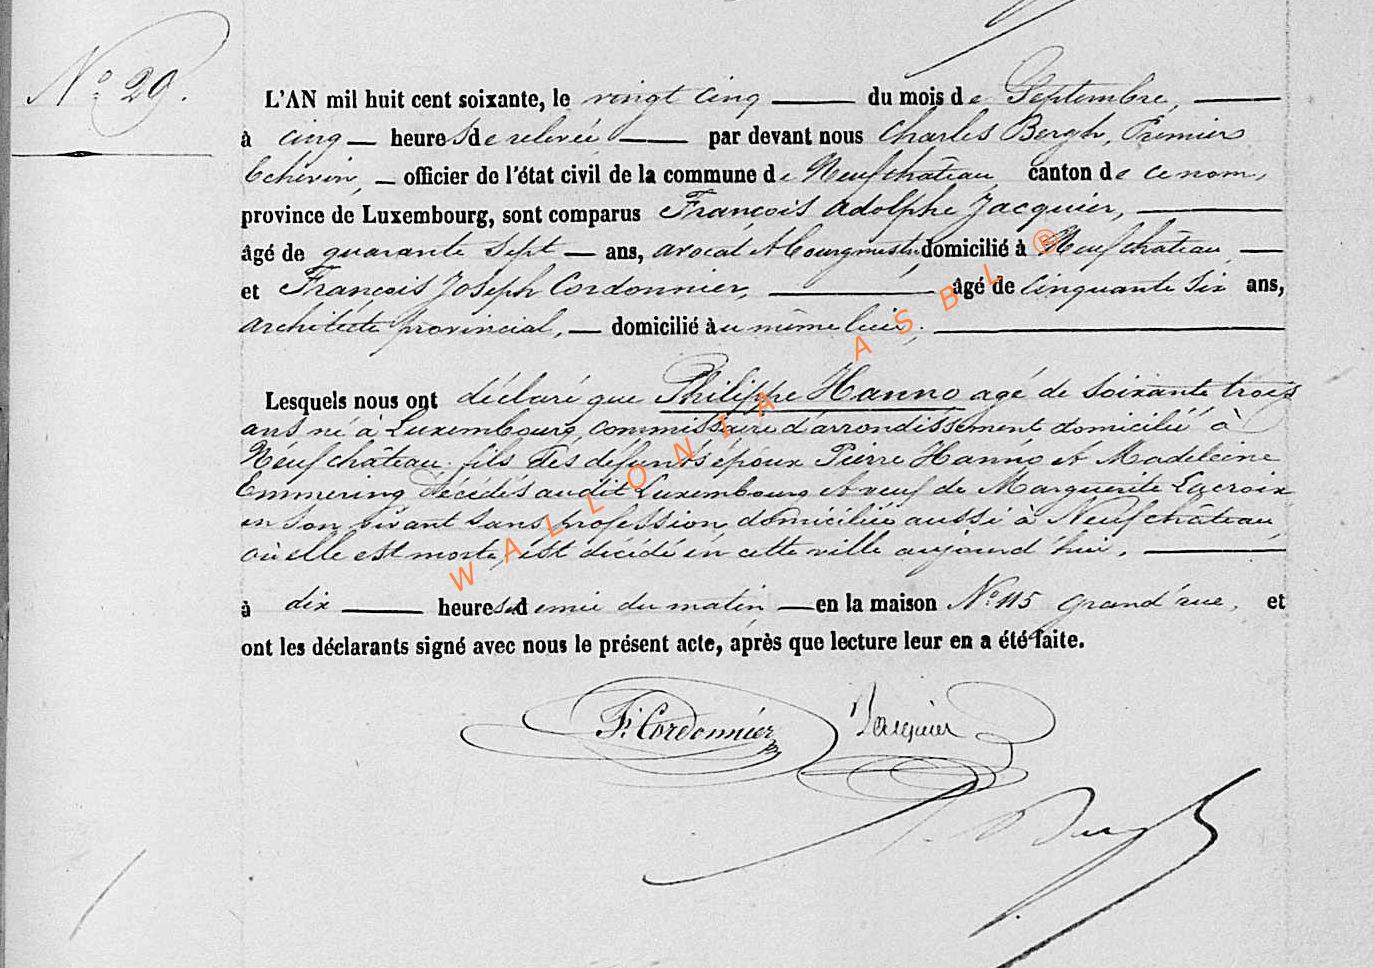 N° 29.
L'AN mil huit cent soixante, le vingt cinq du mois de Septembre,
à cinq heures de relevée par devant nous Charles Bergh, Premier
Echevin, officier de l'état civil de la commune de Neufchâteau canton de ce nom,
province de Luxembourg, sont comparus François Adolphe Jacquier,
âgé de quarante sept ans, avocat et bourgmestre, domicilié à Neufchâteau,
et François Joseph Cordonnier, âgé de cinquante six ans,
architecte provincial, domicilié au même lieu;
Lesquels nous ont déclaré que Philippe Hanno agé de soixante trois
ans né à Luxembourg, commissaire d'arrondissement domicilié à
Neufchâteau, fils des défunts époux Pierre Hanno et Madeleine
Emmering décédés audit Luxembourg et veuf de Marguerite Lacroix
en son vivant sans profession domiciliée aussi à Neufchâteau
où elle est morte, est décédé en cette ville aujourd'hui,
à dix heures et demie du matin en la maison N° 115 grand'rue, et
ont les déclarants signé avec nous le présent acte, après que lecture leur en a été faite.
F. Cordonnier Jacquier
Bergh
WALLONIA ASBL ®